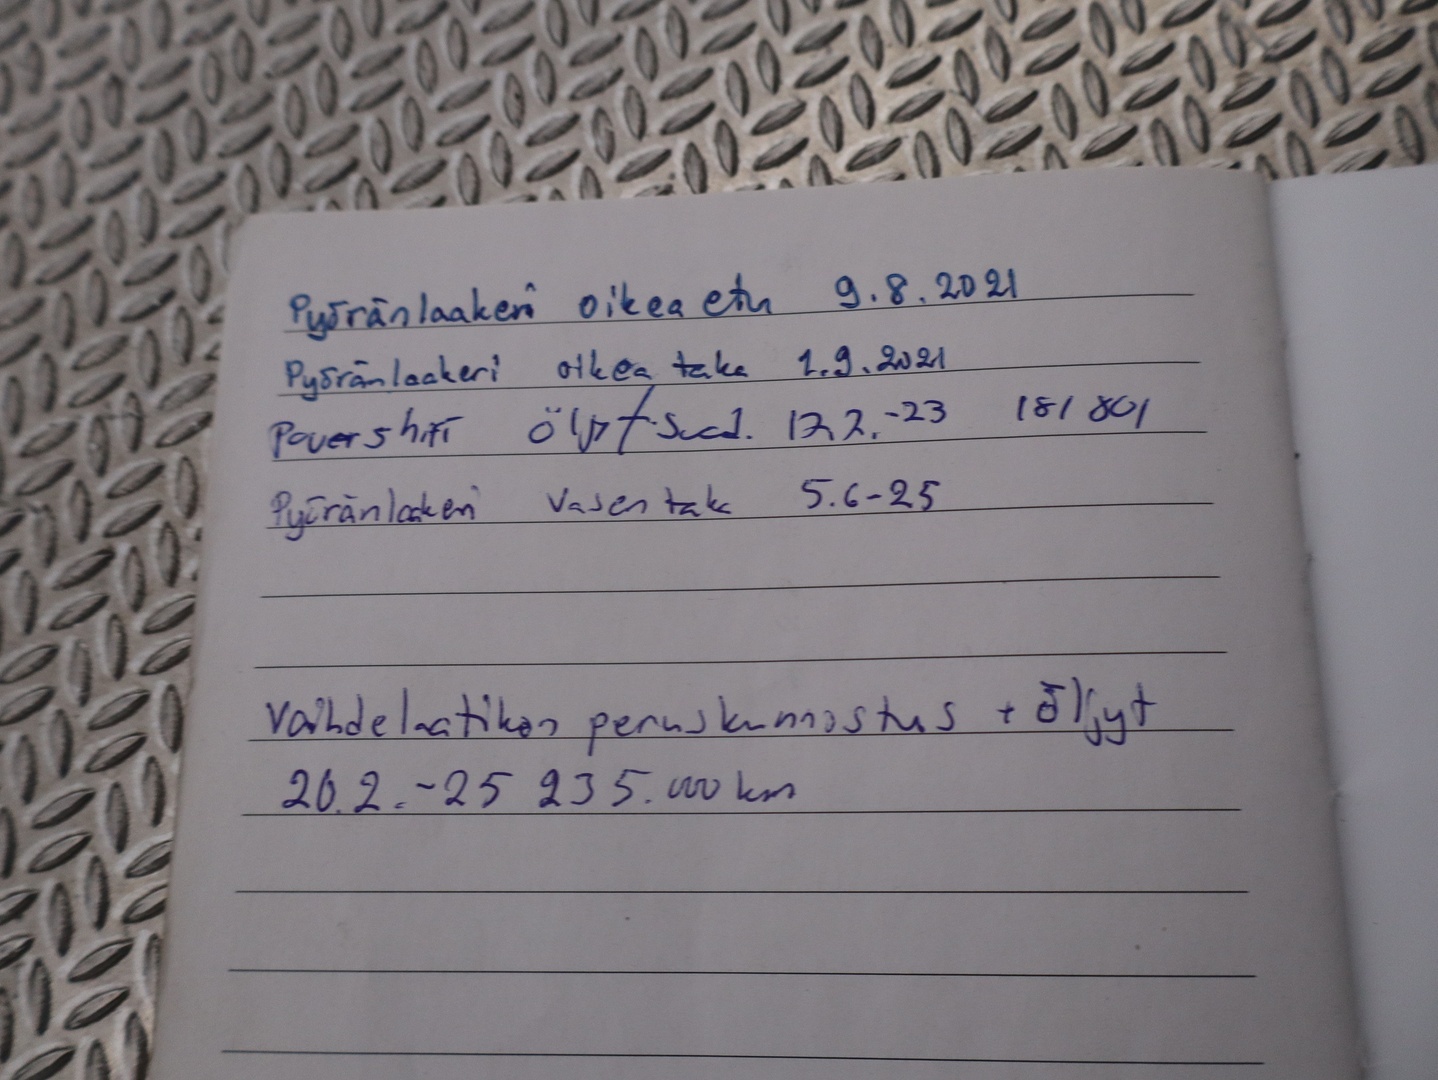 Pyöränlaakeri oikea etu 9.8.2021
Pyöränlaakeri oikea taka 1.9.2021
Powershift öljyt/suod. 12.2.-23 181 801
Pyöränlaakeri Vasen taka 5.6-25
Vaihdelaatikon peruskunnostus + öljyt
20.2.-25 235.000 km